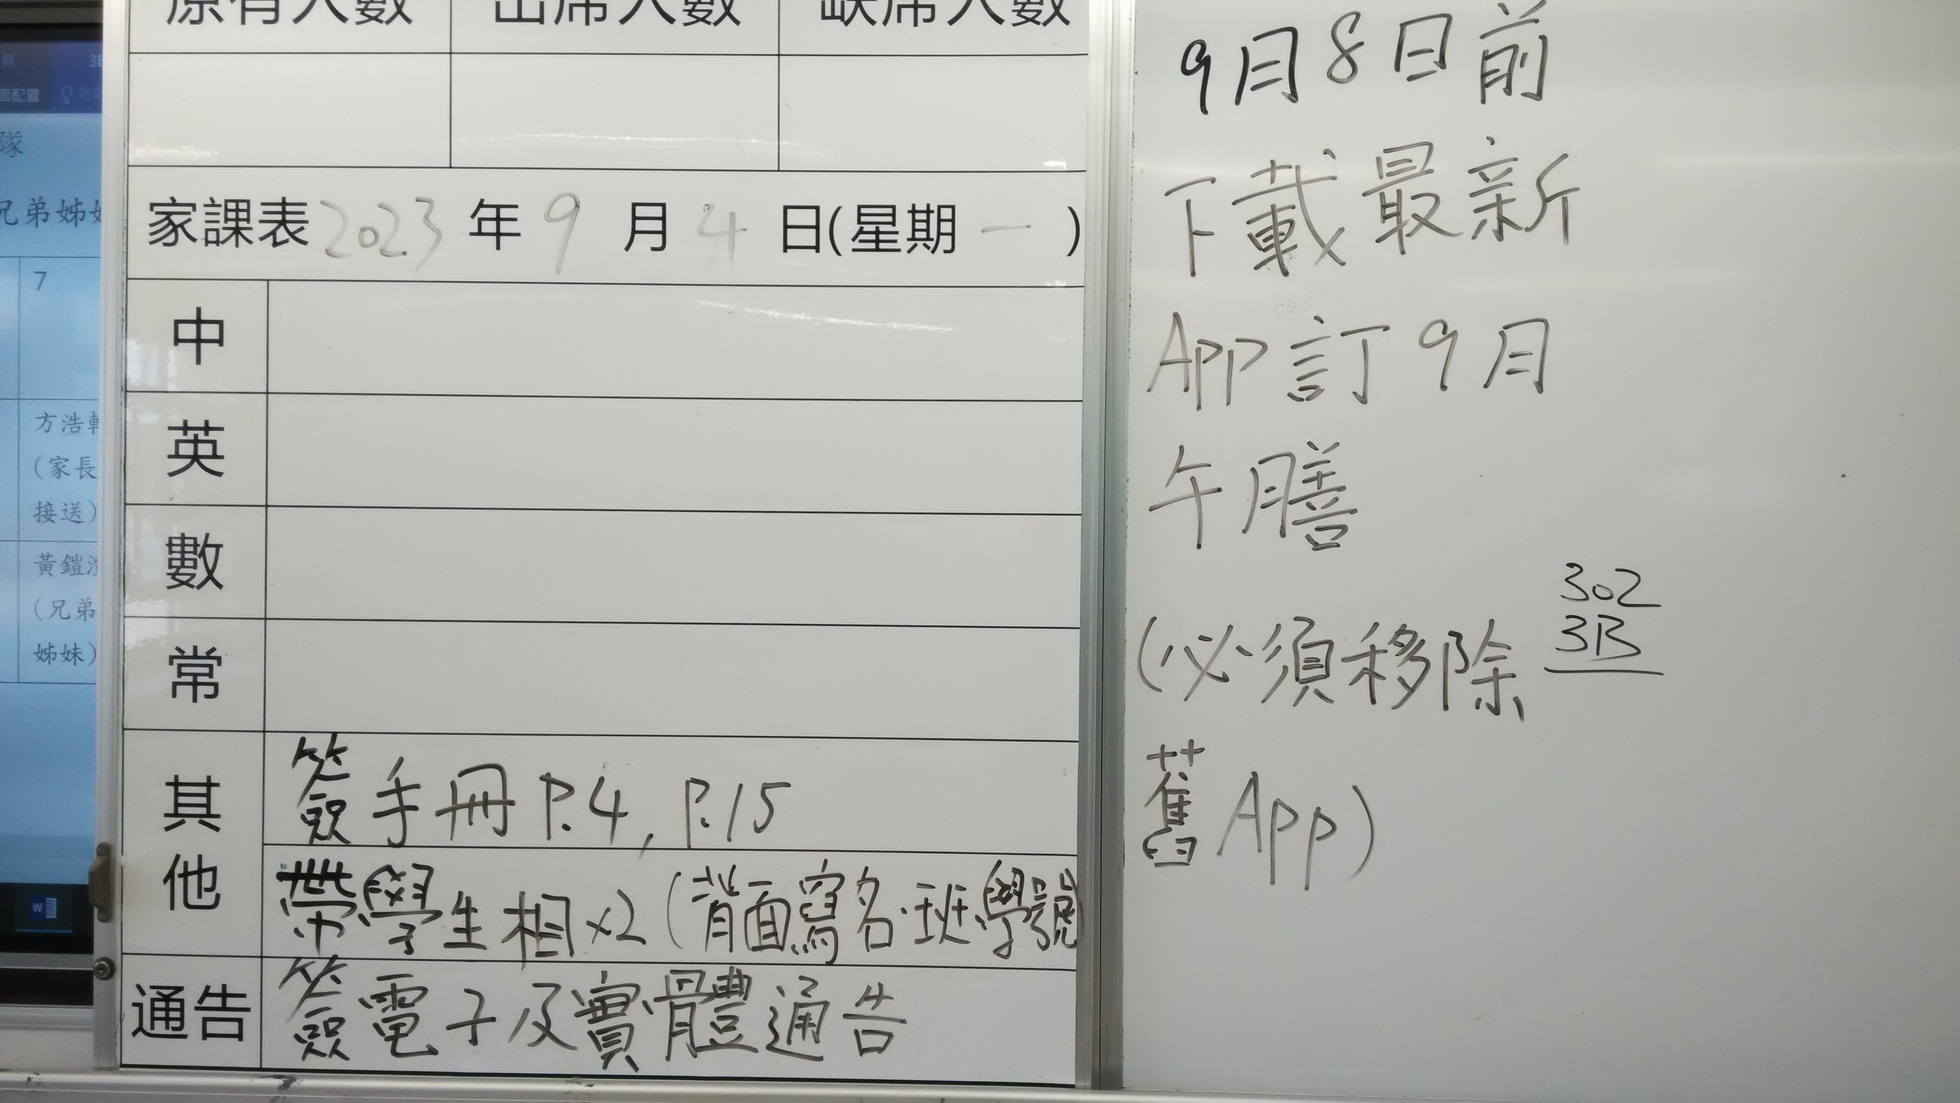 原有人數 出席人數 缺席人數
家課表 2023 年 9 月 4 日(星期 一 )
中
英
數
常
其他
簽手冊 P.4, P.15
帶學生相x2 (背面寫名.班.學號)
通告
簽電子及實體通告
9月8日前
下載最新
App 訂 9月
午膳
(必須移除
舊 App)
302
3B
面配置
隊
兄弟姊
7
方浩
(家長
接送)
黃鎧
(兄弟
姊妹)
W